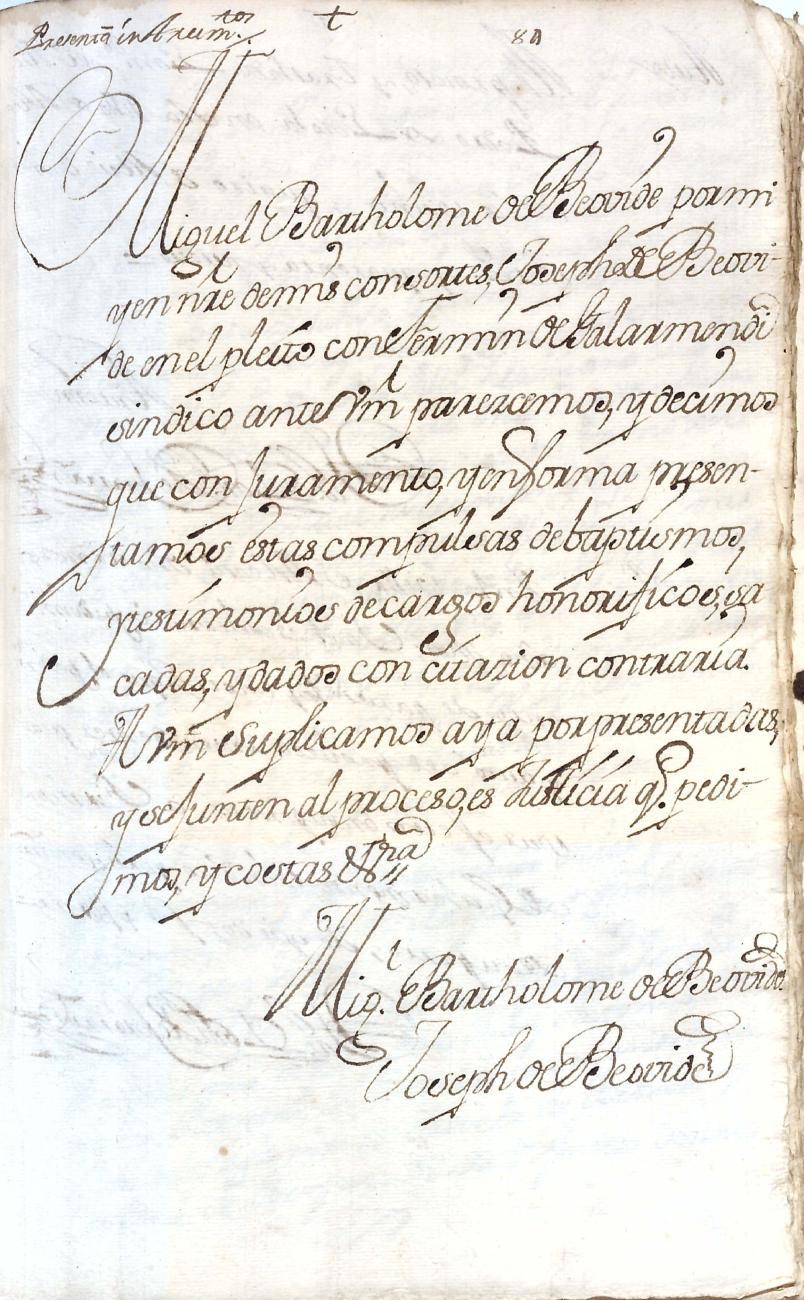 Presentā instrum.tos
+
Miguel Bartholome de Beovide por mi
y en nr̄e de mis consortes, Joseph de Beovi-
de en el pleito con Fermin de Galarmendi
sindico ante Vm̄ parezcemos, y decimos
que con Juramento, y en forma presen-
tamos estas compulsas de baptismos,
y testimonios de cargos honorificos, sa
cadas, y dados con citazion contraria.
A Vm̄ Suplicamos aya por presentadas,
y se Junten al proceso, es Justicia q.e pedi-
mos, y costas &.ra
Mig.l Bartholome de Beovide
Joseph de Beovide